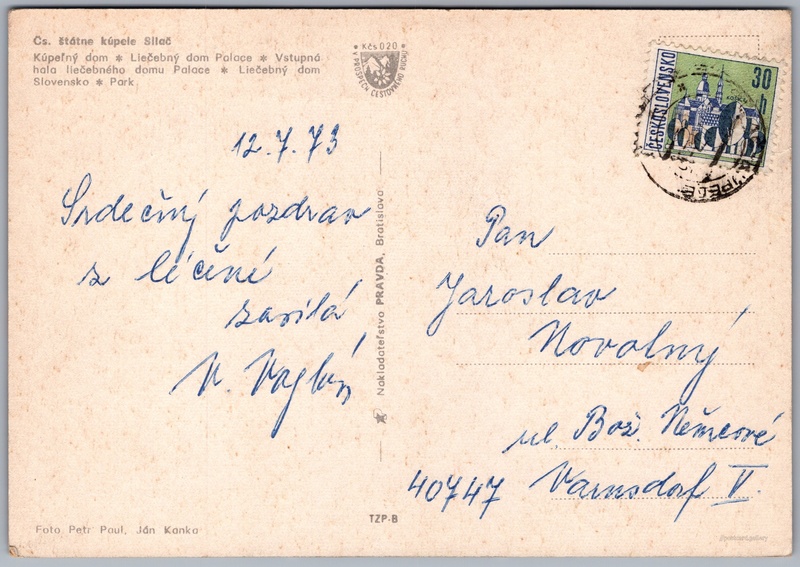 Čs. štátne kúpele Sliač
Kúpeľný dom * Liečebný dom Palace * Vstupná
hala liečebného domu Palace * Liečebný dom
Slovensko * Park.
Kčs 020
V PROSPECH CESTOVNÉHO RUCHU
ČESKOSLOVENSKO
30
h
KÚPELE
12.7.73
Srdečný pozdrav
z léčení
zasílá
Nakladateľstvo PRAVDA, Bratislava
Pan
Jaroslav
Novotný
ul. Bož. Němcové
40747 Varnsdorf V.
Foto Petr Paul, Ján Kanka
TZP-B